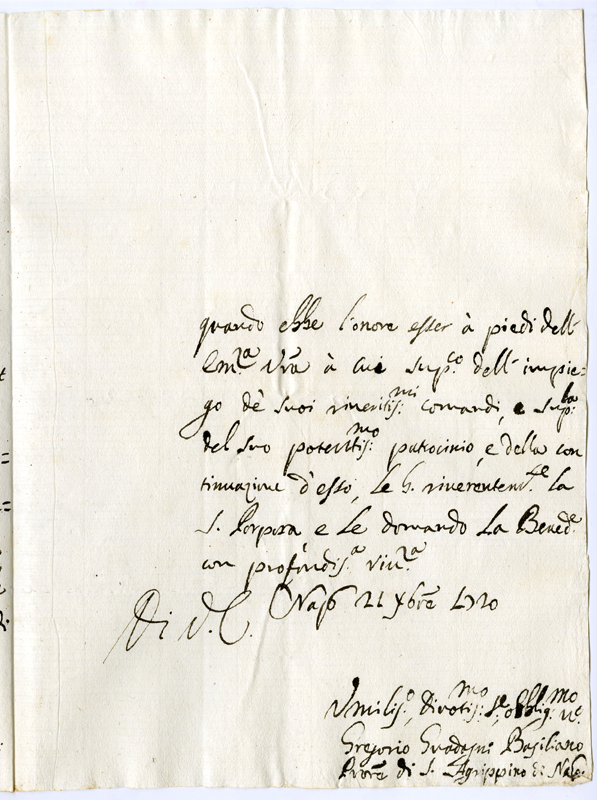 quando ebbe l'onore esser à piedi dell'
Em.za Vra à cui sup.co dell'impie=
go de' suoi riveritis:mi comandi, e sup:la
del suo potentis:mo patrocinio, e della con
tinuazione d'esso, Le b. riverentem.te la
S. Porpora, e Le domando La Bened.e
con profondis.a riv.za
Di V. E. Nap. 21 Xbre 1720
Umilis.o, Divotis:mo Se, obblig:mo
Gregorio Guadagni Basiliano
Procre di S. Agrippino di Nap.